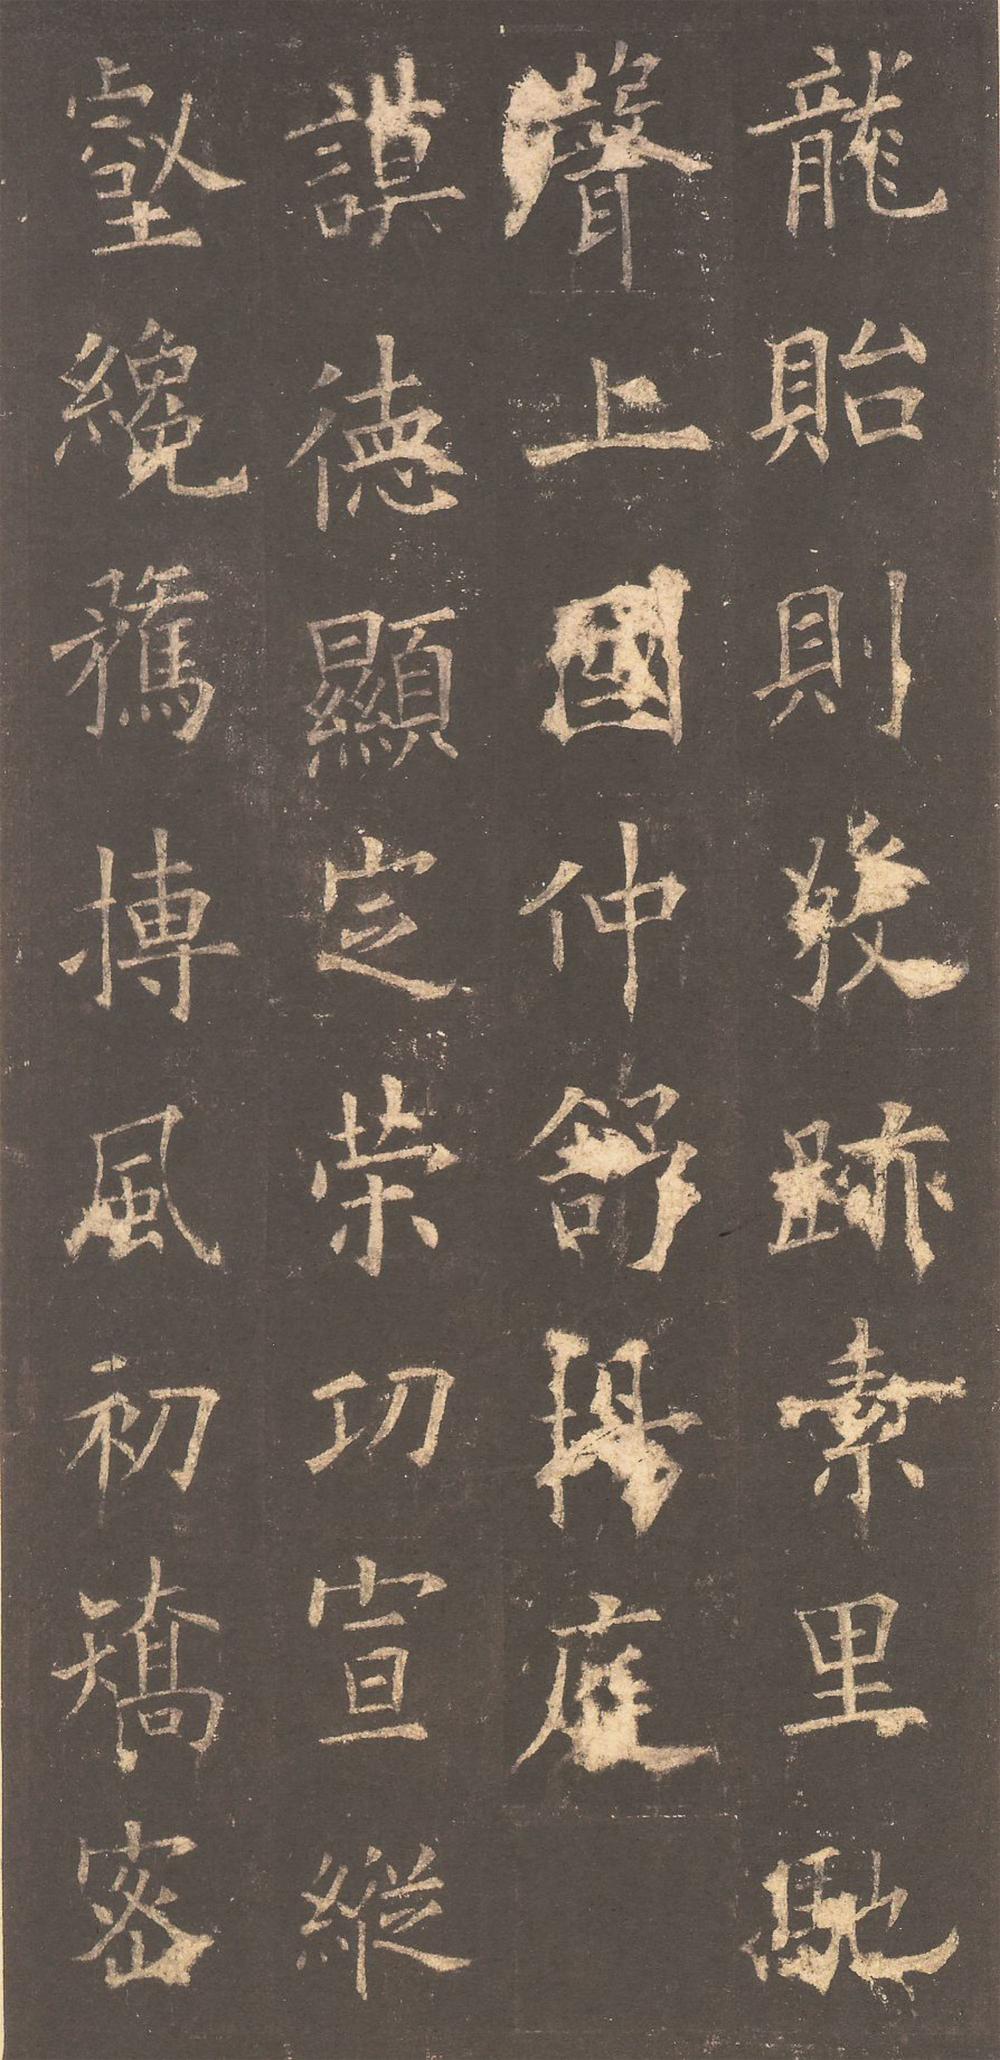 龍貽則發跡素里馳
聲上國仲舒揚庭
謨德顯定榮功宣縱
壑纔鶱摶風初矯密